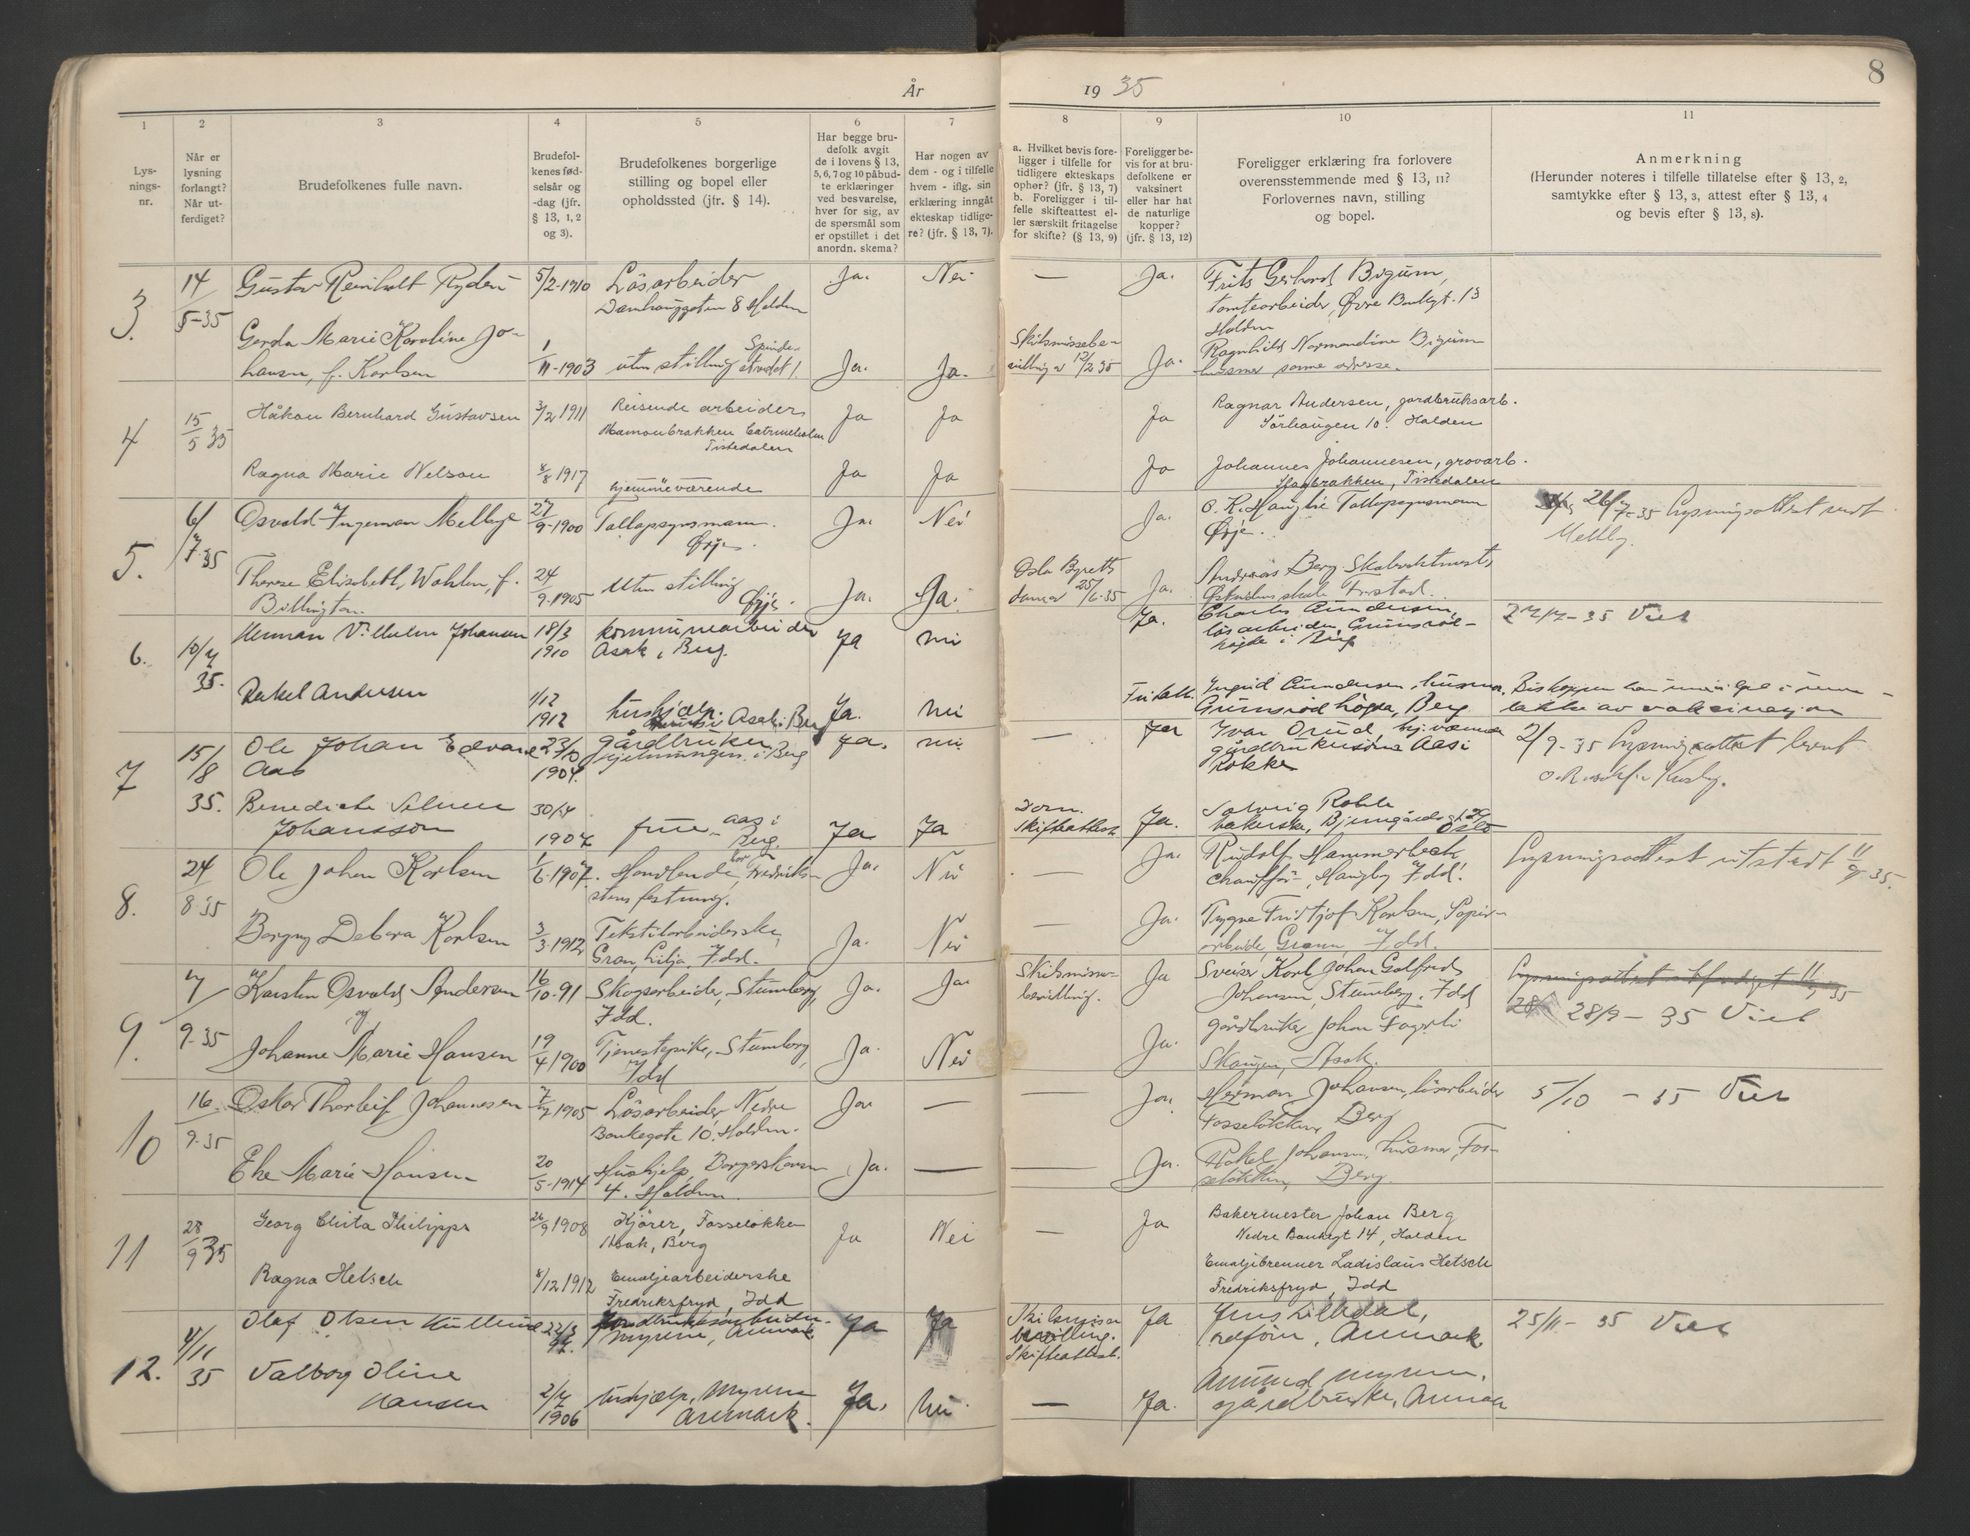 År 1935
8
1
2
3
4
5
6
7
8
9
10
11
Lys-
nings-
nr.
Når er
lysning
forlangt?
Når ut-
ferdiget?
Brudefolkenes fulle navn.
Brudefol-
kenes fød-
selsår og
-dag (jfr.
§ 13, 1, 2
og 3).
Brudefolkenes borgerlige
stilling og bopel eller
opholdssted (jfr. § 14).
Har begge bru-
defolk avgit
de i lovens § 13,
5, 6, 7 og 10 påbud-
te erklæringer
ved besvarelse,
hver for sig, av
de spørsmål som
er opstillet i det
anordn. skema?
Har nogen av
dem - og i tilfelle
hvem - iflg. sin
erklæring inngått
ekteskap tidlige-
re? (jfr. § 13, 7).
a. Hvilket bevis fore-
ligger i tilfelle for
tidligere ekteskaps
ophør? (jfr. § 13, 7)
b. Foreligger i til-
felle skifteattest el-
ler særskilt fritagelse
for skifte? (§ 13, 9)
Foreligger be-
vis for at bru-
defolkene er
vaksinert
eller har hat
de naturlige
kopper?
(jfr. § 13, 12)
Foreligger erklæring fra forlovere
overensstemmende med § 13, 11?
Forlovernes navn, stilling
og bopel.
Anmerkning
(Herunder noteres i tilfelle tillatelse efter § 13, 2,
samtykke efter § 13, 3, attest efter § 13, 4
og bevis efter § 13, 8).
3.
14/5-35
Gustav Reinholt Ryden
5/2-1910
Løsarbeider
8 Halden
Ja.
Nei
—
Ja.
Frits Gerhard Bigum,
tomtearbeider, Øvre Bankgt. 13
Halden
Gerda Marie Karoline Jo-
hansen, f. Karlsen
1/11-1903
uten stilling
Ja.
Ja.
Skilsmissebe-
villing 12/2 35
Ja.
Ragnhild Normandine Bigum
husmor samme adresse.
4
15/5 35
Håkon Bernhard Gustavsen
3/2 1911
Reisende arbeider
Tistedalen
Ja
Ja
Ja
Ragnar Andersen, jordbruksarb.
Sørhaugen 10. Halden
Ragna Marie Nelson
8/8 1917
hjemmeværende
Ja
Ja
Ja
Johannes Johannesen, grovarb.
Tistedalen
5.
6/7-35
Osvald Ingeman Mellbye
27/9-1900
Tallopsynsmann.
Ørje.
Ja.
Nei
Ja.
Tallopsynsmann
Ørje.
26/7-35 Lysningsattest sendt
Mellby.
Therese Elisabeth Wahlen, f.
Billington
24/9-1905
Uten stilling
Ørje.
Ja.
Ja.
Oslo Byretts
dom av 25/6-35
Ja.
Andreas Berg
6.
10/7 35.
Herman Vilhelm Johansen
18/3 1910
kommunearbeider
Asak i Berg.
Ja
nei
Ja.
Charles Gundersen,
løsarbeider, Grimsrød-
høgda i Berg
27/7-35 Viet
Rakel Andersen
1/12 1912
hushjelp.
Asak i Berg
Ja.
nei
Ingrid Gundersen, husmor,
Grimsrødhøgda, Berg
7
15/8 35.
Ole Johan Edvard
Aas
23/10 1904.
gårdbruker
i Berg
Ja.
nei
—
Ja
Ivar Orud, hj. værende
gårdbrukersønn Aas i
Rokke
2/9-35 Lysningsattest levert
Benedicte Selma
Johansson
30/4 1907
frue - Aas i
Berg.
Ja
Ja
Dom.
Skifteattest
Ja.
Solveig Rohle
Oslo
8.
24/8-35
Ole Johan Karlsen
1/6-1907.
Handlende, bor Fredrik-
stens festning.
Ja.
Nei
—
Ja.
Rudolf Hammerbeck
chauffør, Haugby Idd.
Lysningsattest utstedt 11/9 35.
Borgny Debora Karlsen
3/3-1912
Tekstilarbeiderske,
Gran, Lilja. Idd.
Ja.
Nei
—
Ja.
Trygve Fridtjof Karlsen, Papir-
arbeide, Grann Idd.
9.
7/9-35
Karsten Osvald Andersen
og
16/10-91
Skogsarbeider, Stumberg,
Idd.
Ja.
Ja.
Skilsmisse-
bevilling.
Ja
Sveiser Karl Johan Galfred
Johansen, Stumberg. Idd
Lysningsattest utferdiget 11/9 35
28/9-35 Viet
Johanne Marie Hansen
19/4 1900
Tjenestepike, Stumberg,
Idd
Ja.
Nei
Ja.
Gårdbruker Johan Fagerli
Skaugen, Asak.
10
16/9-35
Oskar Thorleif Johannesen
7/7 1905
Løsarbeider, Nedre
Bankegate 10. Halden.
Ja.
—
—
Ja.
Herman Johansen, løsarbeider
Fosseløkken, Berg
5/10 - 35 Viet
Else Marie Hansen
20/5-1914
Hushjelp, Borgerskansen
4. Halden.
Ja.
—
—
Ja.
Rakel Johansen, husmor, Fos-
seløkken, Berg.
11
28/9 35
Georg Chita Philipps
26/9 1908
Kjører, Fosseløkken
Asak, Berg
Ja
Nei
—
Ja
Bakermester Johan Berg
Nedre Bankegt 14, Halden
Ragna Hetsch
8/12 1912
Emaljearbeiderske
Fredriksfryd, Idd
Emaljebrenner Ladislaus Hetsch
Fredriksfryd, Idd
12.
4/11 35
Olaf Olsen
22/3
Jordbruksarbeider.
Myrene, Aremark
Ja
Ja
Skilsmisse
bevilling.
Skifteattest.
Ja
Jens Lilledal,
Aremark
25/11-35 Viet
Valborg Oline
Hansen
2/7 1906
hushjelp, Myrene
Aremark.
Ja.
nei
—
Ja.
Amund Myrene,
gårdbruker, Aremark